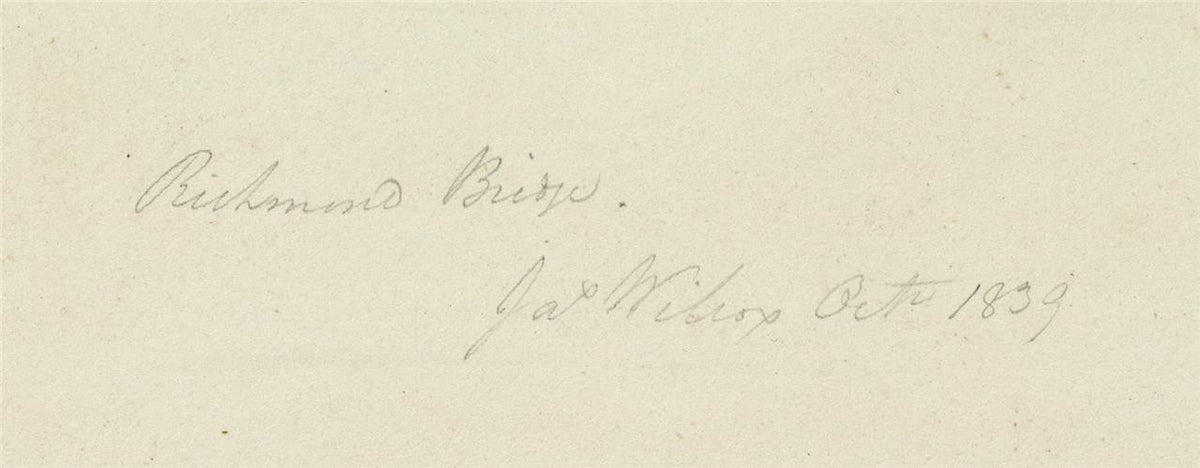 Richmond Bridge.
Jas Wilcox Octr 1839